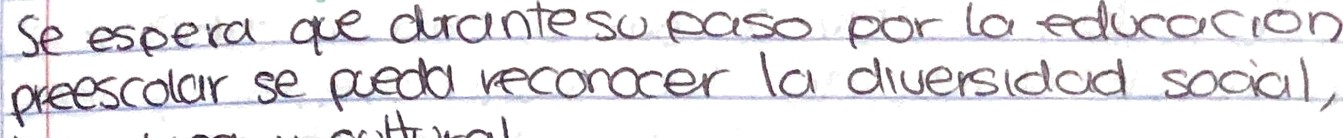 Se espera que durante su paso por la educacion
preescolar se pueda reconocer la diversidad social,